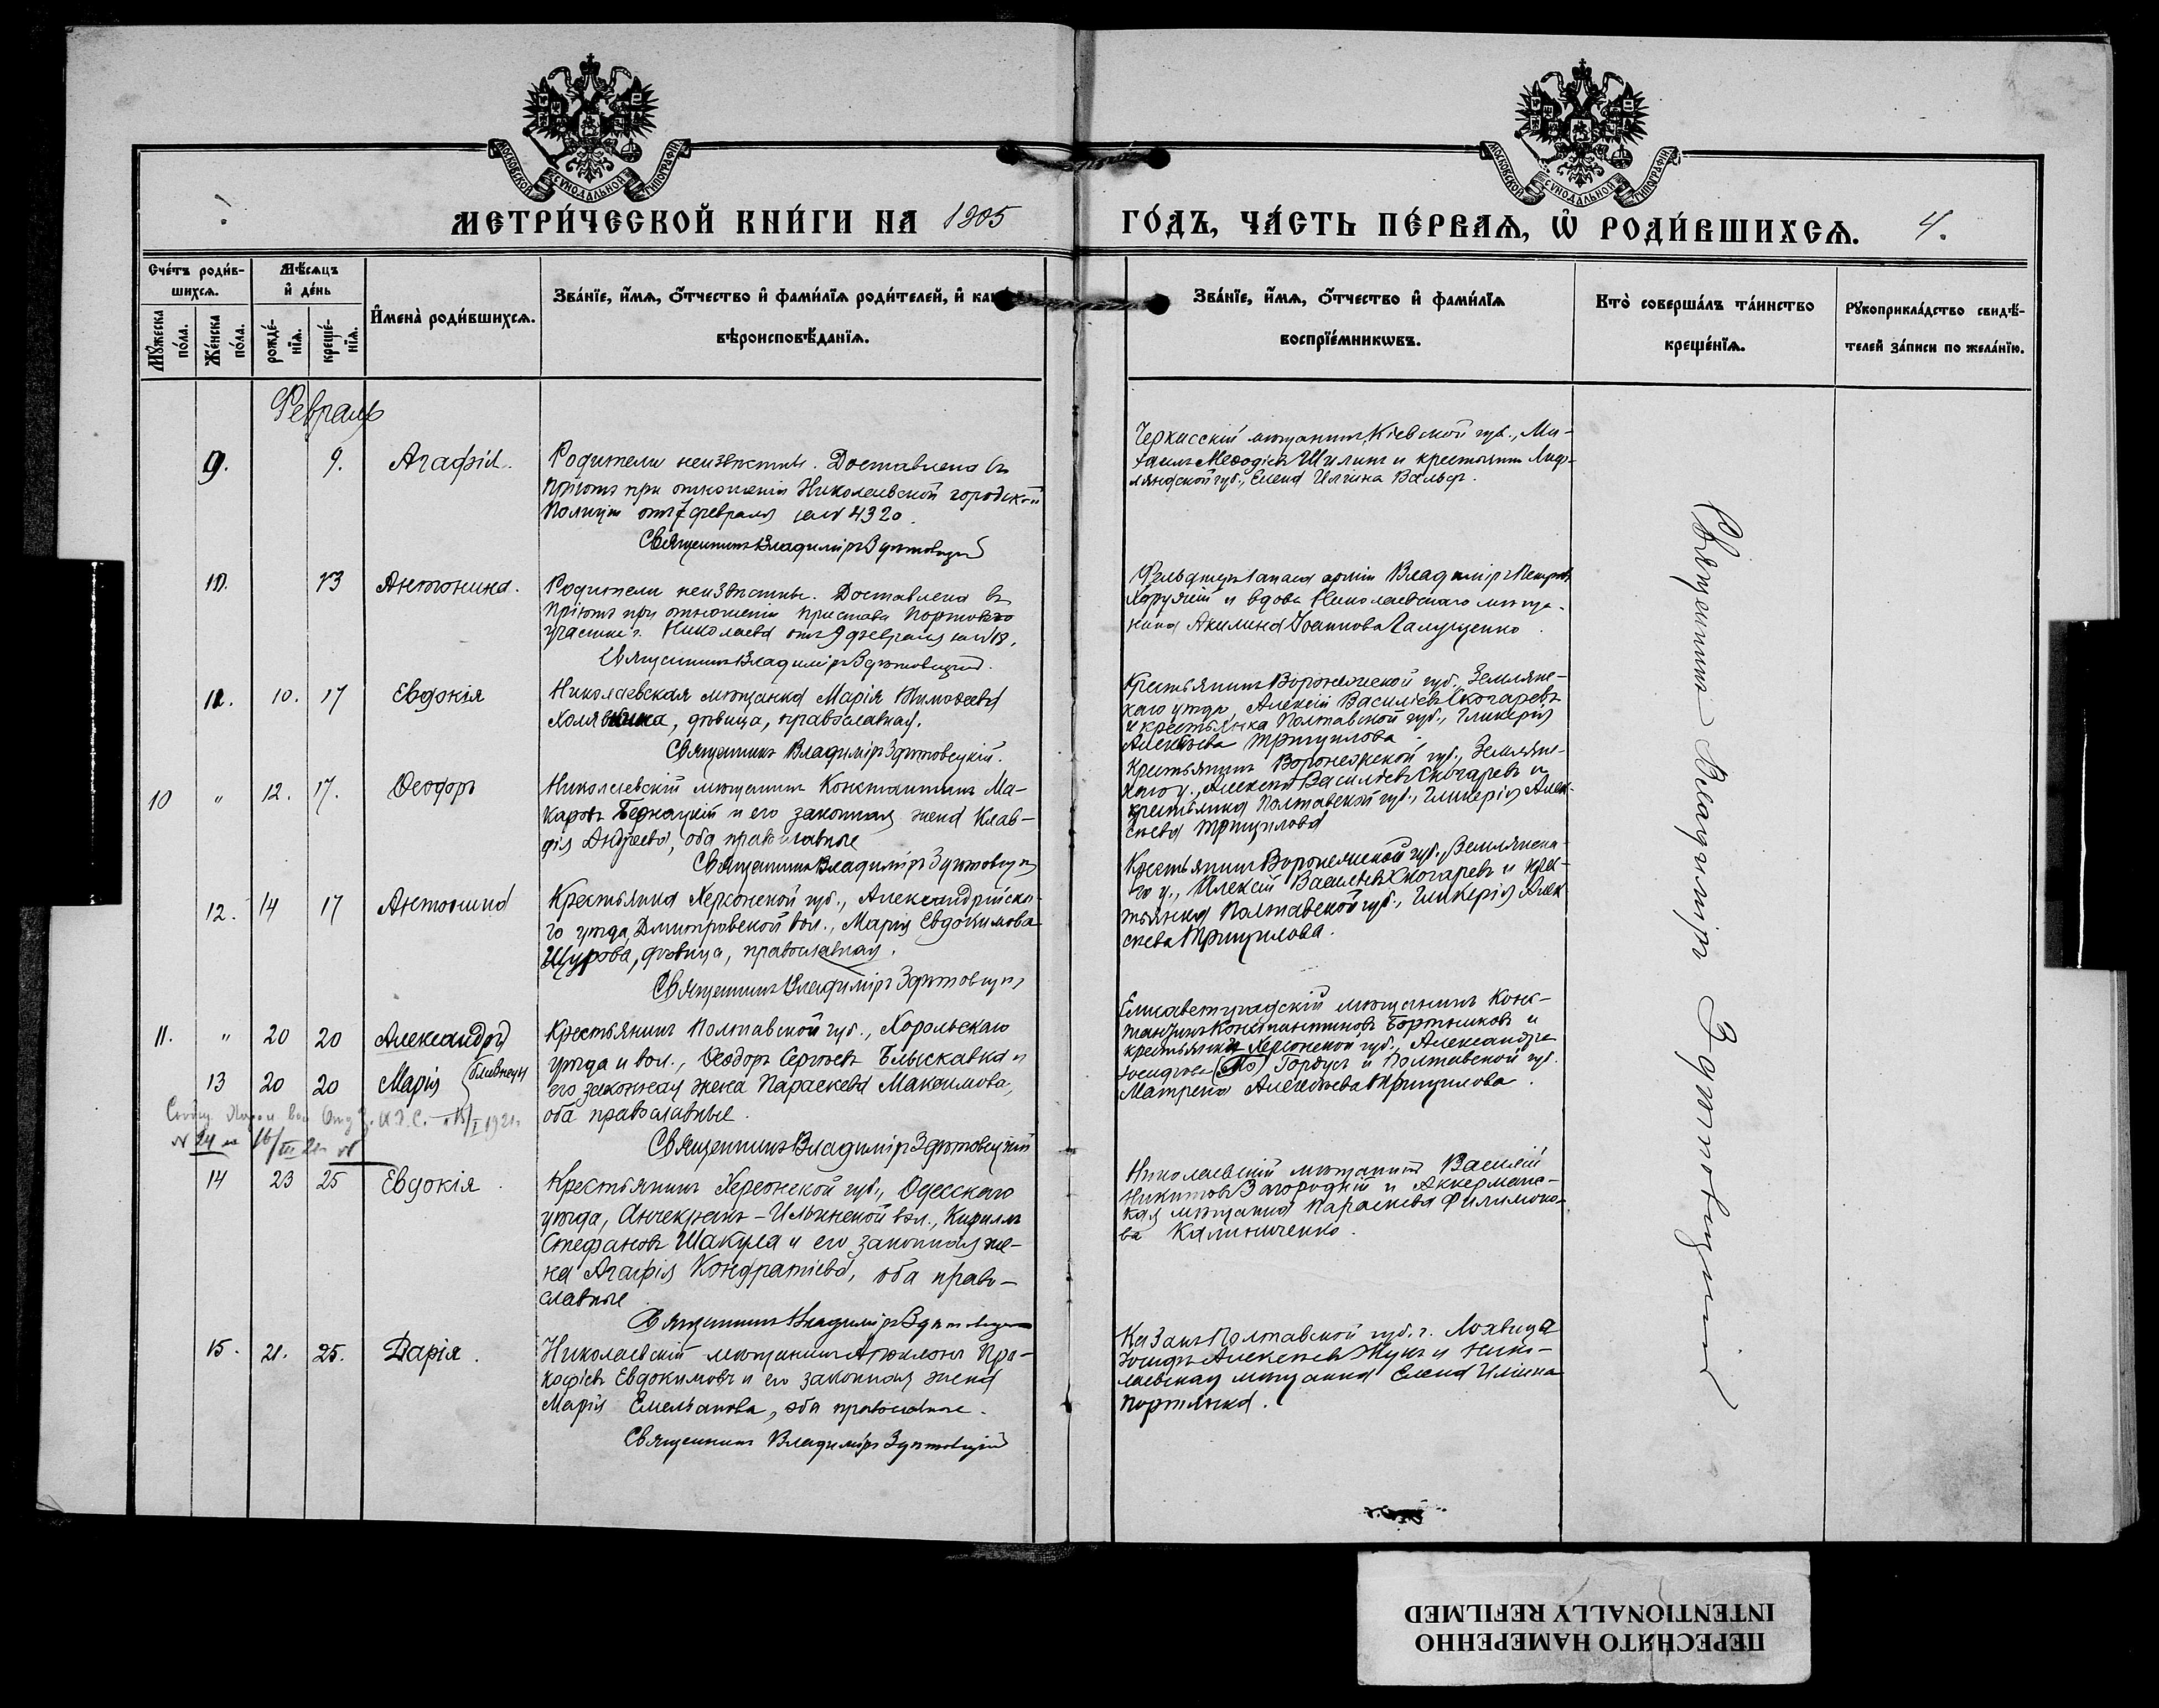 МОСКОВСКОЙ СѴНОДАЛЬНОЙ ТИПОГРАФІИ
МОСКОВСКОЙ СѴНОДАЛЬНОЙ ТИПОГРАФІИ
МЕТРИ́ЧЕСКОЙ КНИ́ГИ НА 1905
ГО́ДЪ, ЧА́СТЬ ПЕ́РВАѦ, Ѡ҆ РОДИ́ВШИХСѦ. 4.
Сче́тъ роди́в-
шихсѧ.
Му́жеска
по́ла.
Же́нска
по́ла.
Мѣ́сѧцъ
и҆ де́нь
рожде́-
нїѧ.
креще́-
нїѧ.
И҆мена̀ роди́вшихсѧ.
Зва́нїе, и҆́мѧ, ѻ҆́тчество и҆ фами́лїѧ роди́телей, и҆ ка
вѣроисповѣ́данїѧ.
Зва́нїе, и҆́мѧ, ѻ҆́тчество и҆ фами́лїѧ
воспрїе́мникѡвъ.
Кто̀ соверша́лъ та́инство
креще́нїѧ.
Рꙋкоприкла́дство свидѣ́-
телей за́писи по жела́нїю.
Февраль
9. 9. Агафія.
Родители неизвѣстны. Доставлена въ
пріютъ при отношеніи Николаевской городской
Полиціи отъ 7 февраля за № 4320.
Священникъ Владиміръ Здѣтовецкій
Черкасскій мѣщанинъ, Кіевской губ., Ми-
хаилъ Меѳодіевъ Шилинъ и крестьянка Лиф-
ляндской губ., Елена Ильина Вальф.
10. 13 Антонина.
Родители неизвѣстны. Доставлена въ
Пріютъ при отношеніи пристава Портового
участка г. Николаева отъ 9 февраля за №
Священникъ Владиміръ Здѣтовецкій.
Фельдшеръ запаса арміи Владиміръ Петровъ
и вдова Николаевскаго мѣща-
нина Акилина Іоаннова Галущенко.
11. 10. 17 Евдокія
Николаевская мѣщанка Марія Тимоѳеева
дѣвица, православная.
Священникъ Владиміръ Здѣтовецкій.
Крестьянинъ Воронежской губ., Землянс-
каго уѣзда, Алексій Васильевъ Скогаревъ
и крестьянка Полтавской губ., Гликерія
Алексѣева Трищилова
10 " 12. 17. Ѳеодоръ
Николаевскій мѣщанинъ Константинъ Ма-
каровъ Бедна­цкій и его законная жена Клав-
дія Андреева, оба православные
Священникъ Владиміръ Здѣтовецкій
Крестьянинъ Воронежской губ., Землянс-
каго у., Алексій Васильевъ Скогаревъ и
крестьянка Полтавской губ., Гликерія Алек-
сѣева Трищилова
12. 14 17 Антонина
Крестьянка Херсонской губ., Александрійска-
го уѣзда, Дмитровской вол., Марія Евдокимова
Щурова, дѣвица, православная.
Священникъ Владиміръ Здѣтовецкій
Крестьянинъ Воронежской губ., Землянска-
го у., Алексій Васильевъ Скогаревъ и крес-
тьянка Полтавской губ., Гликерія Алек-
сѣева Трищилова.
11. " 20 20 Александръ
13 20 20 Марія } близнецы
Крестьянинъ Полтавской губ., Хорольскаго
уѣзда и вол., Ѳеодоръ Сергѣевъ Блыскавка и
его законная жена Параскева Максимова,
оба православные.
Священникъ Владиміръ Здѣтовецкій
Елисаветградскій мѣщанинъ Конс-
тантинъ Константиновъ Бортниковъ и
крестьянки Херсонской губ., Александра
Іосифова Гордусъ и Полтавской губ.
Матрена Алексѣева Трищилова.
14 23 25 Евдокія.
Крестьянинъ Херсонской губ., Одесскаго
уѣзда, Анчекракъ-Ильинской вол., Кириллъ
Стефановъ Шакула и его законная же-
на Агафія Кондратіева, оба право-
славные
Священникъ Владиміръ Здѣтовецкій
Николаевскій мѣщанинъ Василій
Никитовъ Загородній и Аккерманс-
кая мѣщанка Параскева Филимоно-
ва Калиниченко.
15. 21. 25. Дарія.
Николаевскій мѣщанинъ Про-
кофіевъ Евдокимовъ и его законная жена
Марія Емельянова, оба православные.
Священникъ Владиміръ Здѣтовецкій
Казакъ Полтавской губ. г. Лохвица
Іосифъ Алексѣевъ Жукъ и Нико-
лаевская мѣщанка Елена Ильина
Портянка.
Священникъ Владиміръ Здѣтовецкій
ПЕРЕСНЯТО НАМЕРЕННО
INTENTIONALLY REFILMED